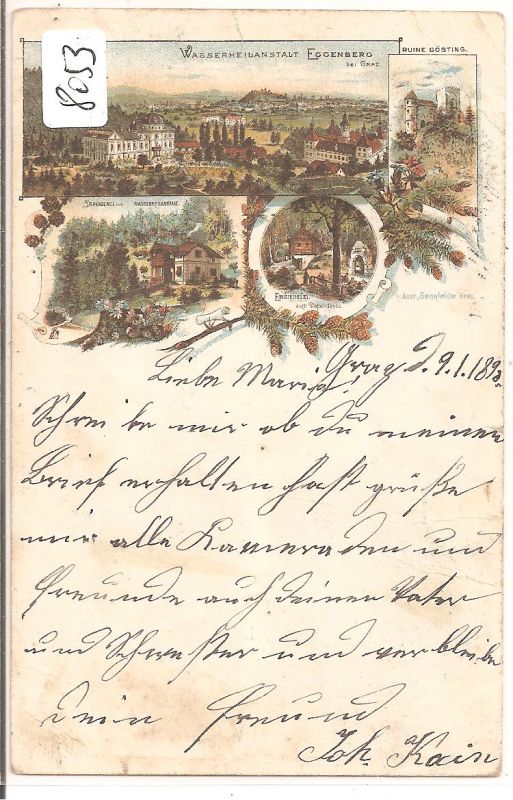 8053
WASSERHEILANSTALT EGGENBERG
BEI GRAZ
RUINE GÖSTING.
WASSERHEILANSTALT.
EINSIEDELEI.
Anst. "Senefelder" Graz.
Graz d. 9.1.1898.
Liebe Marie!
Schreibe mir ob du meinen
Brief erhalten hast grüße
mir alle Kameraden und
Freunde auch deinen Vater
und Schwester und verbleibe
dein Freund
Joh. Kain